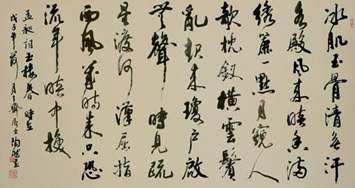 冰肌玉骨清無汗
水殿風來暗香滿
繡簾一點月窺人
欹枕釵橫雲鬢
亂起來瓊戶啟
無聲時見疏
星渡河漢屈指
西風幾時來只恐
流年暗中換
孟昶詞玉樓春 時在
戊子年